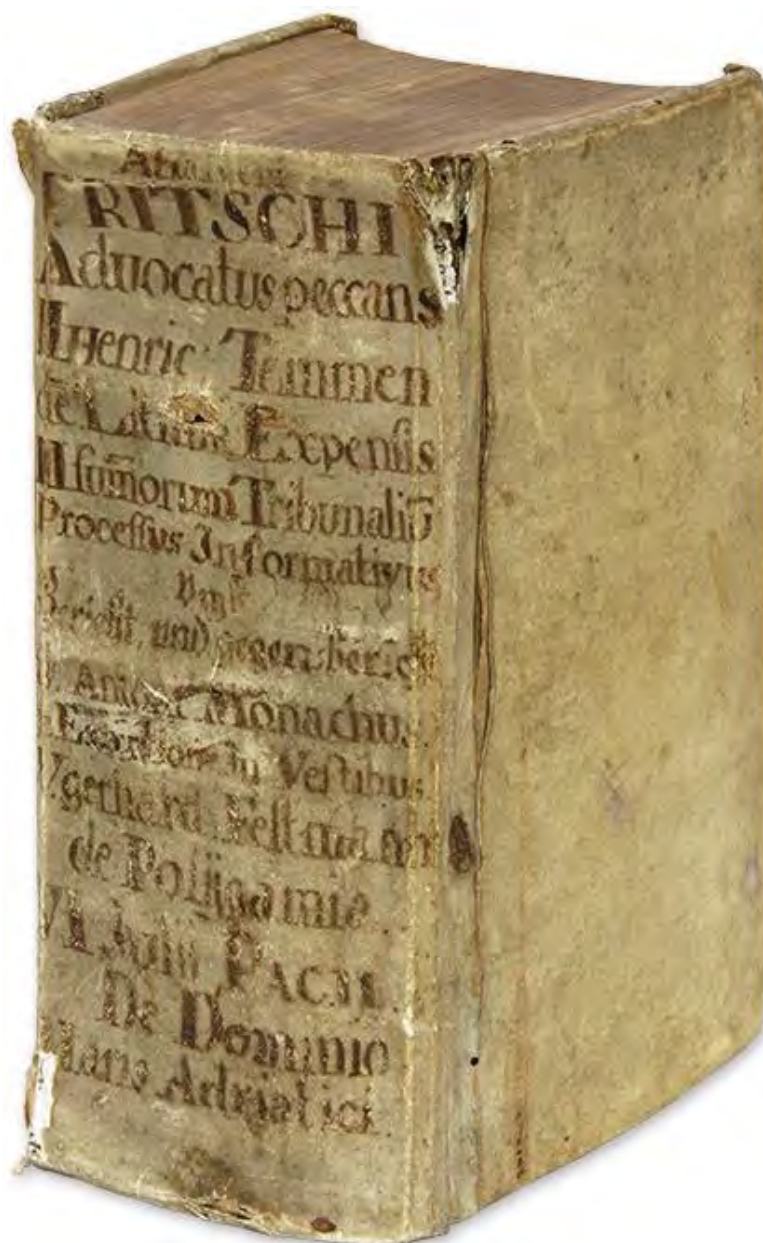 FRITSCHI
Advocatus peccans
II Henric: Temmen
de Expensis
III sum̃orum Tribunaliũ
Processus Informativus
Bericht und gegenbericht
Monachus
in Vestibus
V. gerhard. Feltmann
de Poligamie
VI. Julii PACII.
De Dominio
Maris Adriatici